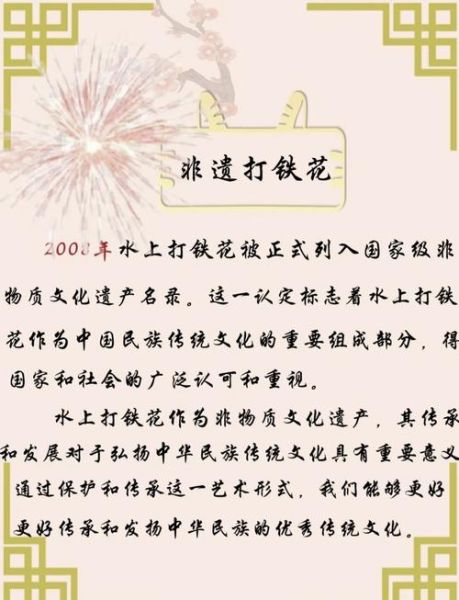 非遗打铁花
2008年水上打铁花被正式列入国家级非
物质文化遗产名录。这一认定标志着水上打铁
花作为中国民族传统文化的重要组成部分，得
国家和社会的广泛认可和重视。
水上打铁花作为非物质文化遗产，其传承
和发展对于弘扬中华民族传统文化具有重要意义
通过保护和传承这一艺术形式，我们能够更好
更好传承和发扬中华民族的优秀传统文化。